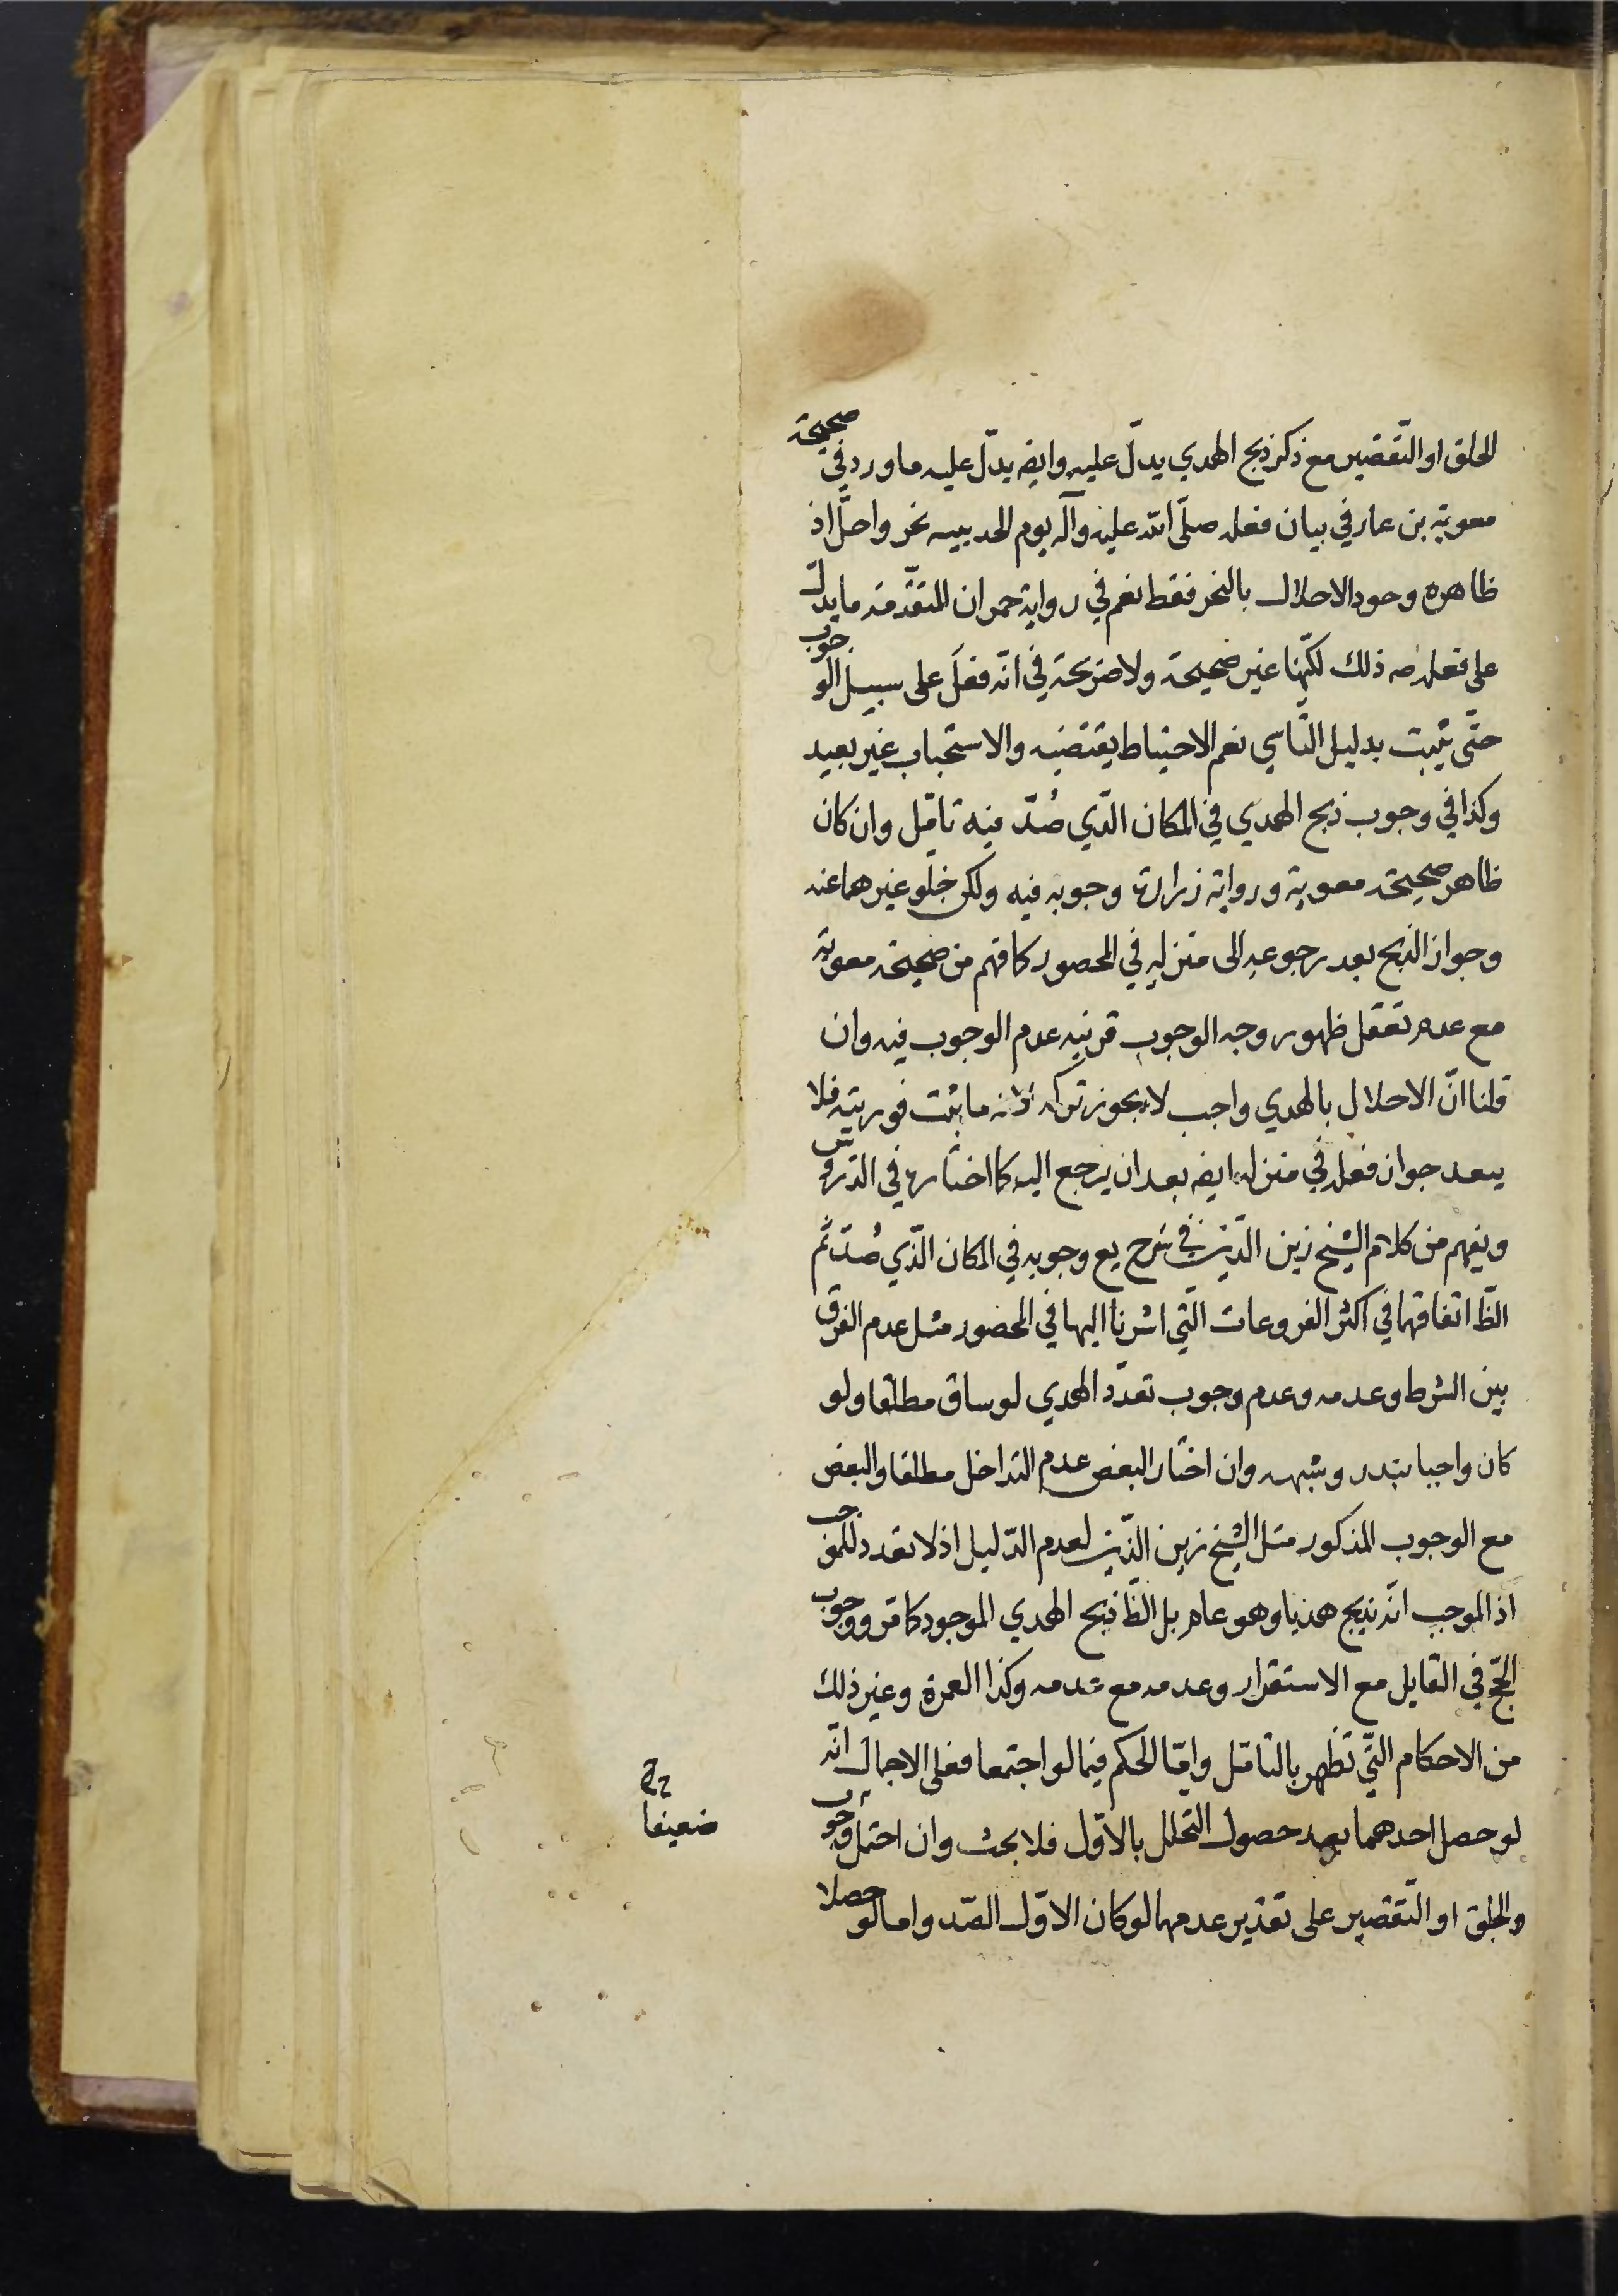 الحلق او التّقصير مع ذكر ذبح الهدي يدلّ عليه وايضه يدلّ عليه ما ورد في صحيحة
معوية بن عمار في بيان فعله صلّى الله عليه وآله يوم الحديبيه نحر واحلّ اذ
ظاهره وجود الاحلال بالنحر فقط نعم في رواية حمران المتقدّمة ما يدلّ
على فعله صه ذلك لكنّها غير صحيحة ولا صريحة في انّه فعلَ على سبيل الوجوب
حتّى يثبت بدليل التّاسي نعم الاحتياط يقتضيه والاستحباب غير بعيد
وكذا في وجوب ذبح الهدي في المكان الّذي صُدّ فيه تامّل وان كان
ظاهر صحيحة معوية ورواية زرارة وجوبه فيه ولكن خلو غيرهما عنه
وجواز الذبح بعد رجوعه الى منزله في المحصور كما فهم من صحيحة معوية
مع عدم تعقل ظهور وجه الوجوب قرينه عدم الوجوب فيه وان
قلنا انّ الاحلال بالهدي واجب لا يجوز تركه لانه ما ثبت فوريته فلا
يبعد جواز فعله في منزله ايضه بعد ان يرجع اليه كما اختاره في الدّروس
ويفهم من كلام الشّيخ زين الدّين في شرح يع وجوبه في المكان الّذي صُدّ ثمّ
الظّ اتفاقهما في اكثر الفروعات الّتي اشرنا اليها في المحصور مثل عدم الفرق
بين الشرط وعدمه وعدم وجوب تعدّد الهدي لو ساق مطلقا ولو
كان واجبا بنذر وشبهه وان اختار البعض عدم التداخل مطلقا والبعض
مع الوجوب المذكور مثل الشّيخ زين الدّين لعدم الدّليل اذ لا تعدد للموجب
اذ الموجب انّه يذبح هديا وهو عام بل الظّ ذبح الهدي الموجود كما مر ووجوب
الحجّ في القابل مع الاستقرار وعدمه مع عدمه وكذا العمرة وغير ذلك
من الاحكام الّتي تظهر بالتامّل وامّا الحكم فيما لو اجتمعا فعلى الاجمال انّه
لو حصل احدهما بعد حصول التحلل بالاوّل فلا بحث وان احتمل وجوب
ضعيفا
والحلق او التّقصير على تقدير عدمهما لو كان الاوّل الصّد واما لو حصلا